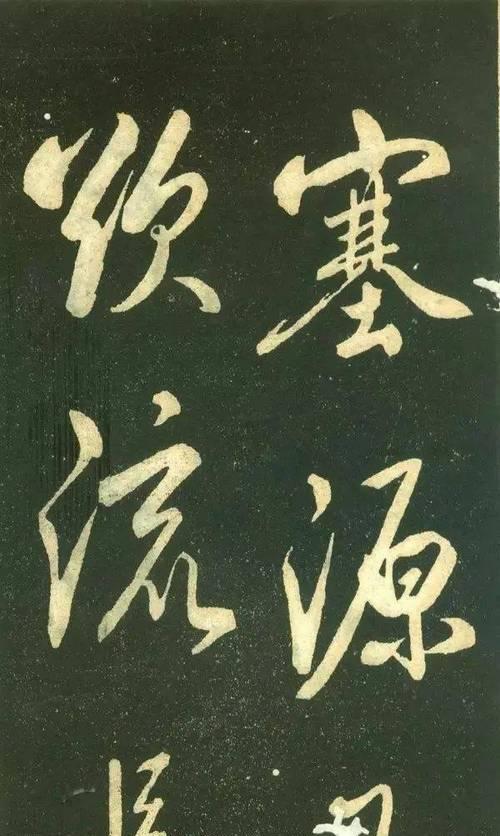 塞源
欲流